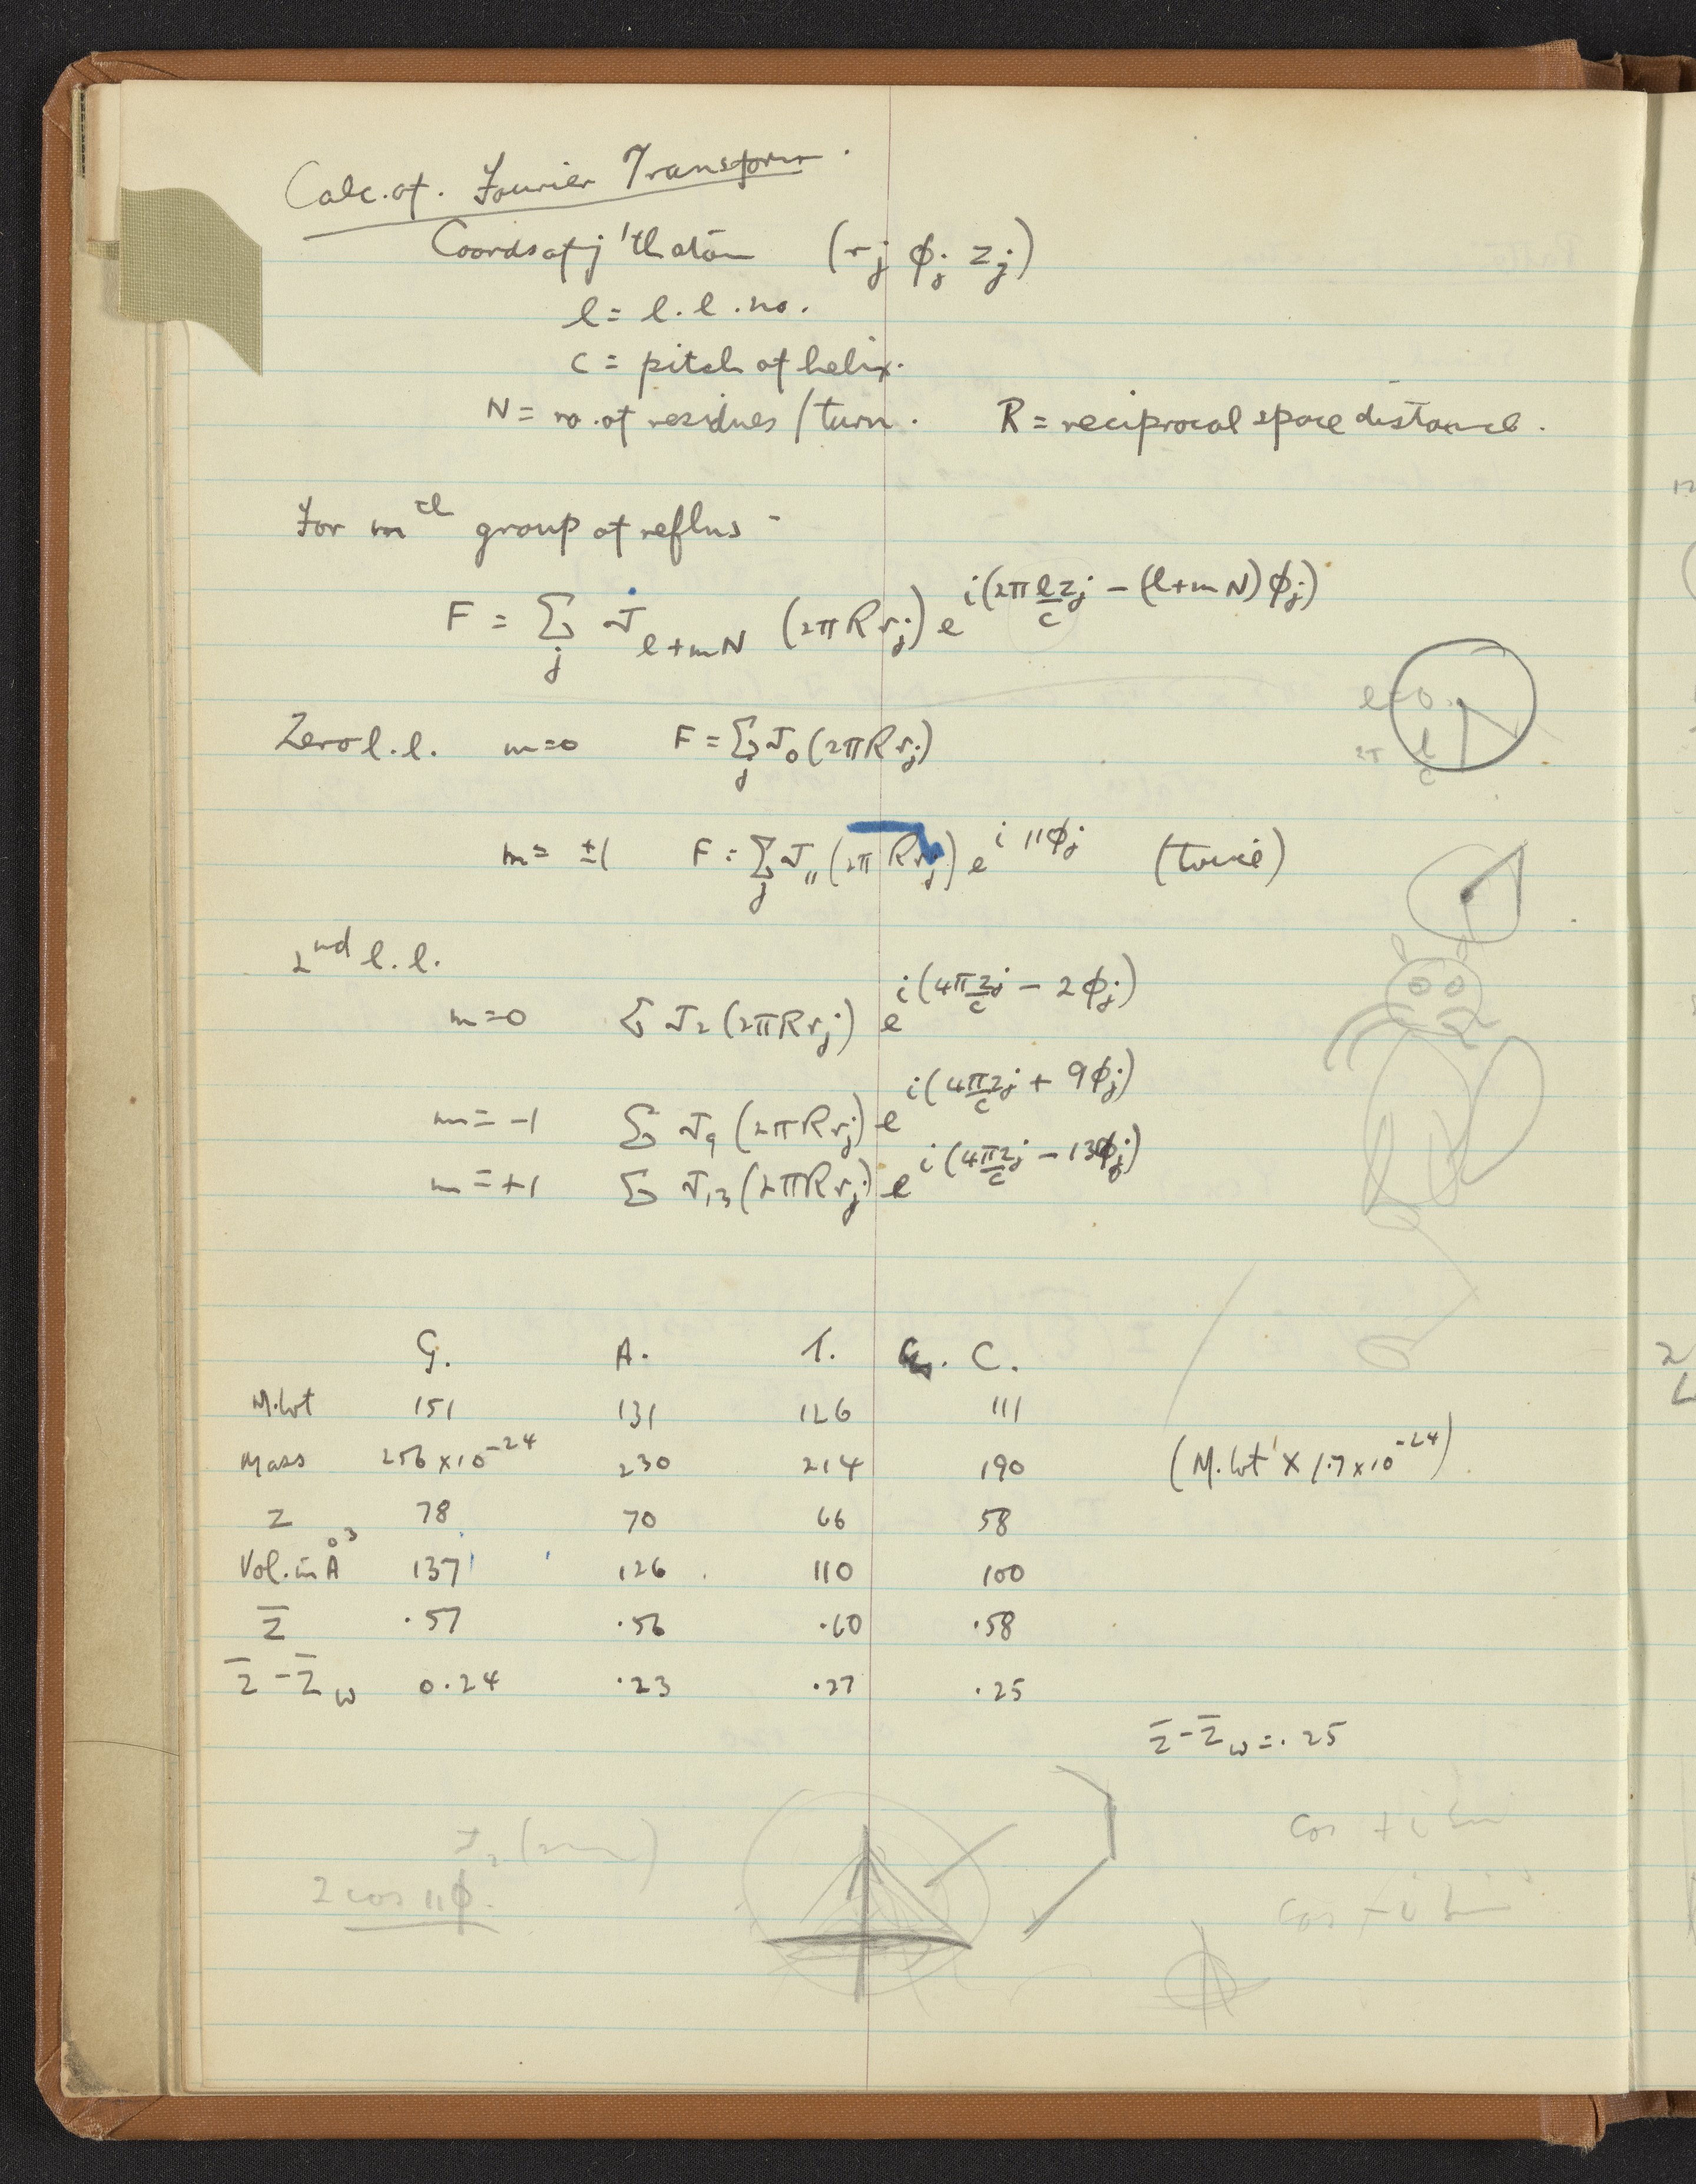 Calc. of. Fourier Transform.
Coords of j'th atom (rj ϕj zj)
l = l.l.no.
c = pitch of helix.
N = no. of residues / turn. R = reciprocal space distance.
For mth group of reflns -
F = Σj J l+mN (2πRrj) e^i(2π lzj/c - (l+mN)ϕj)
l = 0.
Zero l.l. m=0 F = Σj J0 (2πRrj)
2π l/c
m = ±1 F = Σj J11 (2πRrj) e^i 11ϕj (twice)
2nd l.l.
m=0 Σ J2 (2πRrj) e^i(4π zj/c - 2ϕj)
m = -1 Σ J9 (2πRrj) e^i(4π zj/c + 9ϕj)
m = +1 Σ J13 (2πRrj) e^i(4π zj/c - 13ϕj)
G. A. T. C.
M.Wt 151 131 126 111
Mass 256 × 10^-24 230 214 190 (M.Wt × 1.7 × 10^-24)
Z 78 70 66 58
Vol. in Å³ 137 126 110 100
Z̄ .57 .56 .60 .58
Z̄ - Z̄w 0.24 .23 .27 .25
Z̄ - Z̄w = .25
cos + i sin
J2 (2
2 cos 11ϕ.
cos - i sin